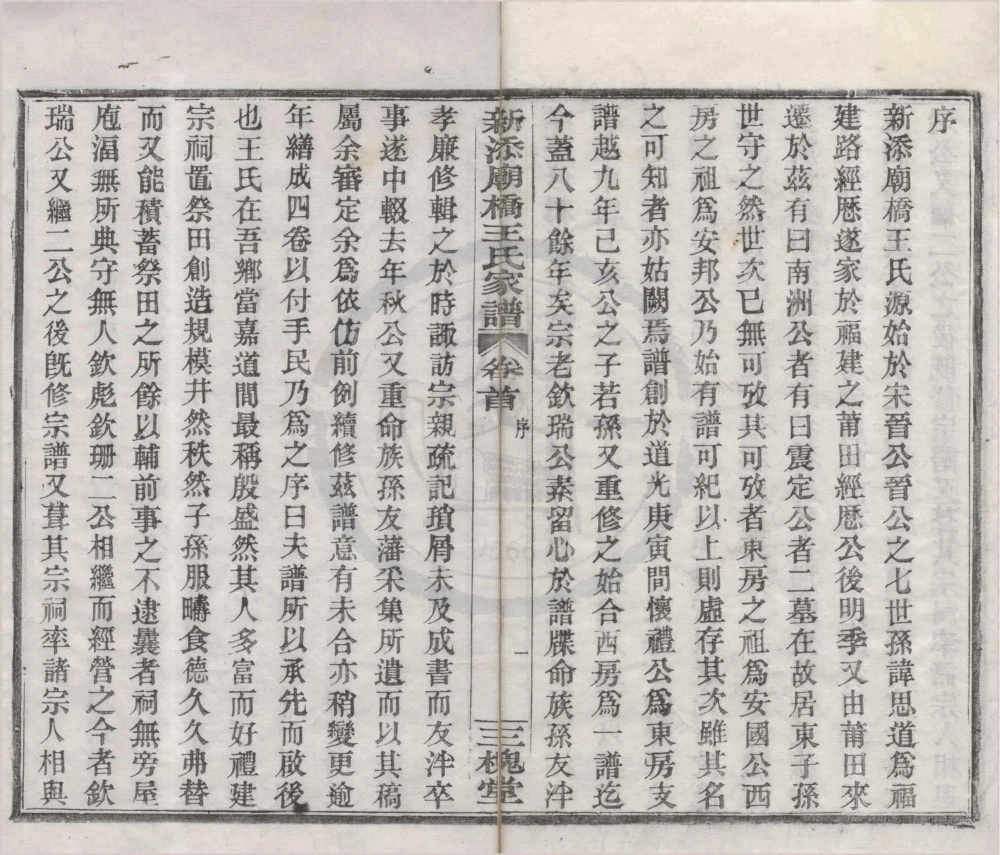 序
新添廟橋王氏源始於宋晉公晉公之七世孫諱思道為福
建路經歷遂家於福建之莆田經歷公後明季又由莆田來
遷於茲有曰南洲公者有曰震定公者二墓在故居東子孫
世守之然世次已無可攷其可攷者東房之祖為安國公西
房之祖為安邦公乃始有譜可紀以上則虛存其次雖其名
之可知者亦姑闕焉譜創於道光庚寅間懷禮公為東房支
譜越九年己亥公之子若孫又重修之始合西房為一譜迄
今蓋八十餘年矣宗老欽瑞公素留心於譜牒命族孫友泮
新添廟橋王氏家譜 卷首 序 一 三槐堂
孝廉修輯之於時諏訪宗親疏記瑣屑未及成書而友泮卒
事遂中輟去年秋公又重命族孫友藩采集所遺而以其稿
屬余審定余為依仿前例續修茲譜意有未合亦稍變更逾
年繕成四卷以付手民乃為之序曰夫譜所以承先而啟後
也王氏在吾鄉當嘉道間最稱殷盛然其人多富而好禮建
宗祠置祭田創造規模井然秩然子孫服疇食德久久弗替
而又能積蓄祭田之所餘以輔前事之不逮曩者祠無旁屋
庖湢無所典守無人欽彪欽珊二公相繼而經營之今者欽
瑞公又繼二公之後旣修宗譜又葺其宗祠率諸宗人相與